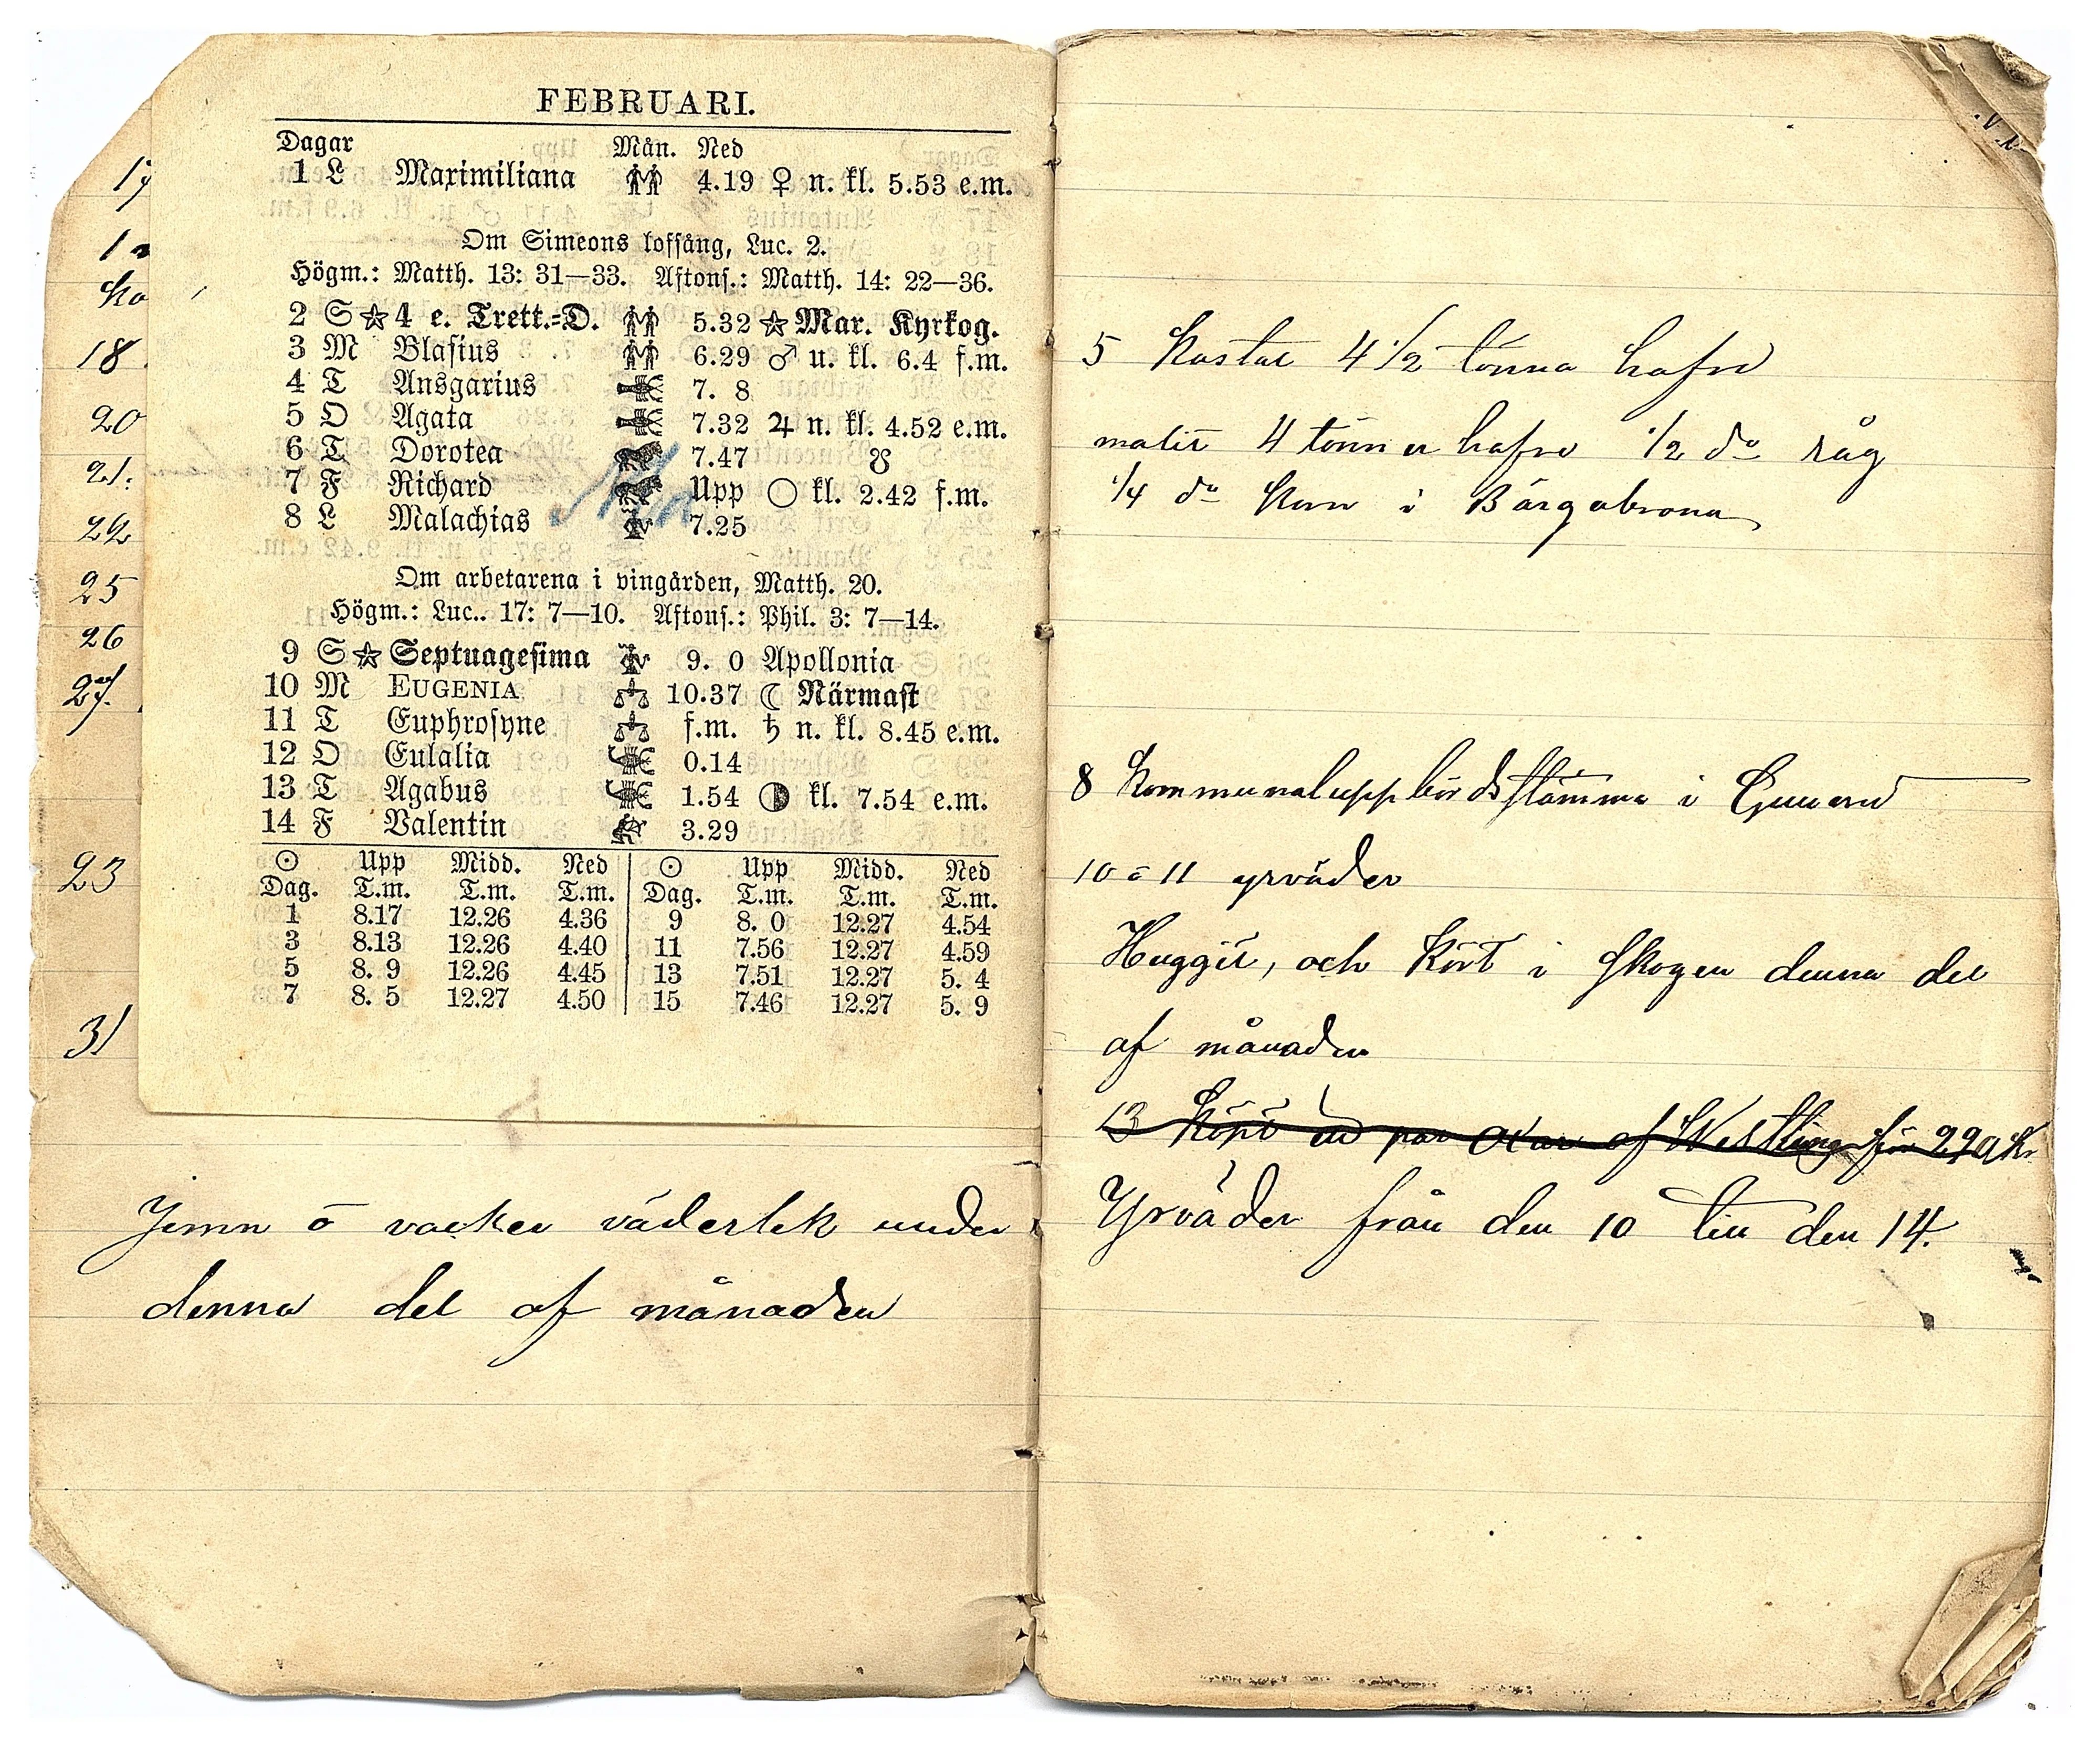 FEBRUARI.
Dagar Mån. Ned
1 L Maximiliana 4.19 ♀ n. kl. 5.53 e.m.
Om Simeons lofsång, Luc. 2.
Högm.: Matth. 13: 31—33. Aftons.: Matth. 14: 22—36.
2 S ☆ 4 e. Trett.=D. 5.32 ☆ Mar. Kyrkog.
3 M Blasius 6.29 ♂ u. kl. 6.4 f.m.
4 T Ansgarius 7. 8
5 O Agata 7.32 ♃ n. kl. 4.52 e.m.
6 T Dorotea 7.47 ☋
7 F Richard Upp ○ kl. 2.42 f.m.
8 L Malachias 7.25
Om arbetarena i vingården, Matth. 20.
Högm.: Luc.. 17: 7—10. Aftons.: Phil. 3: 7—14.
9 S ☆ Septuagesima 9. 0 Apollonia
10 M EUGENIA 10.37 ☾ Närmast
11 T Euphrosyne f.m. ♄ n. kl. 8.45 e.m.
12 O Eulalia 0.14
13 T Agabus 1.54 ◑ kl. 7.54 e.m.
14 F Valentin 3.29
☉ Upp Midd. Ned ☉ Upp Midd. Ned
Dag. T.m. T.m. T.m. Dag. T.m. T.m. T.m.
1 8.17 12.26 4.36 9 8. 0 12.27 4.54
3 8.13 12.26 4.40 11 7.56 12.27 4.59
5 8. 9 12.26 4.45 13 7.51 12.27 5. 4
7 8. 5 12.27 4.50 15 7.46 12.27 5. 9
17
18
20
21.
22
25
26
27.
23
31
Jemn o vacker väderlek under
denna del af månaden
5 Kastat 4 1/2 tönna hafre
malit 4 tönner hafre 1/2 do råg
1/4 do Korn i Bärgabrona
8 Kommunaluppbördsstämma i
10 o 11 yrväder
Huggit, och Kört i skogen denna del
af månaden
13 Köpt ett par Oxar af Westling för Kr
Yrväder från den 10 till den 14.